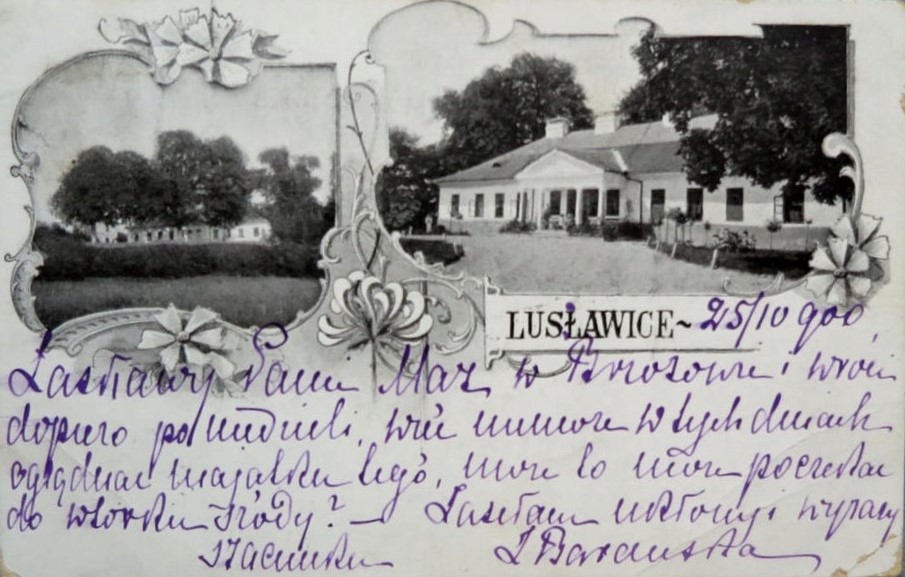 LUSŁAWICE~ 25/10 900
Łaskawy Panie Mąż w Brzozowie i wróci
dopiero po niedzieli, więc nie może w tych dniach
oglądnąć majątku tego, może to może poczekać
do wtorku środy? — Zasełam ukłony i wyrazy
szacunku